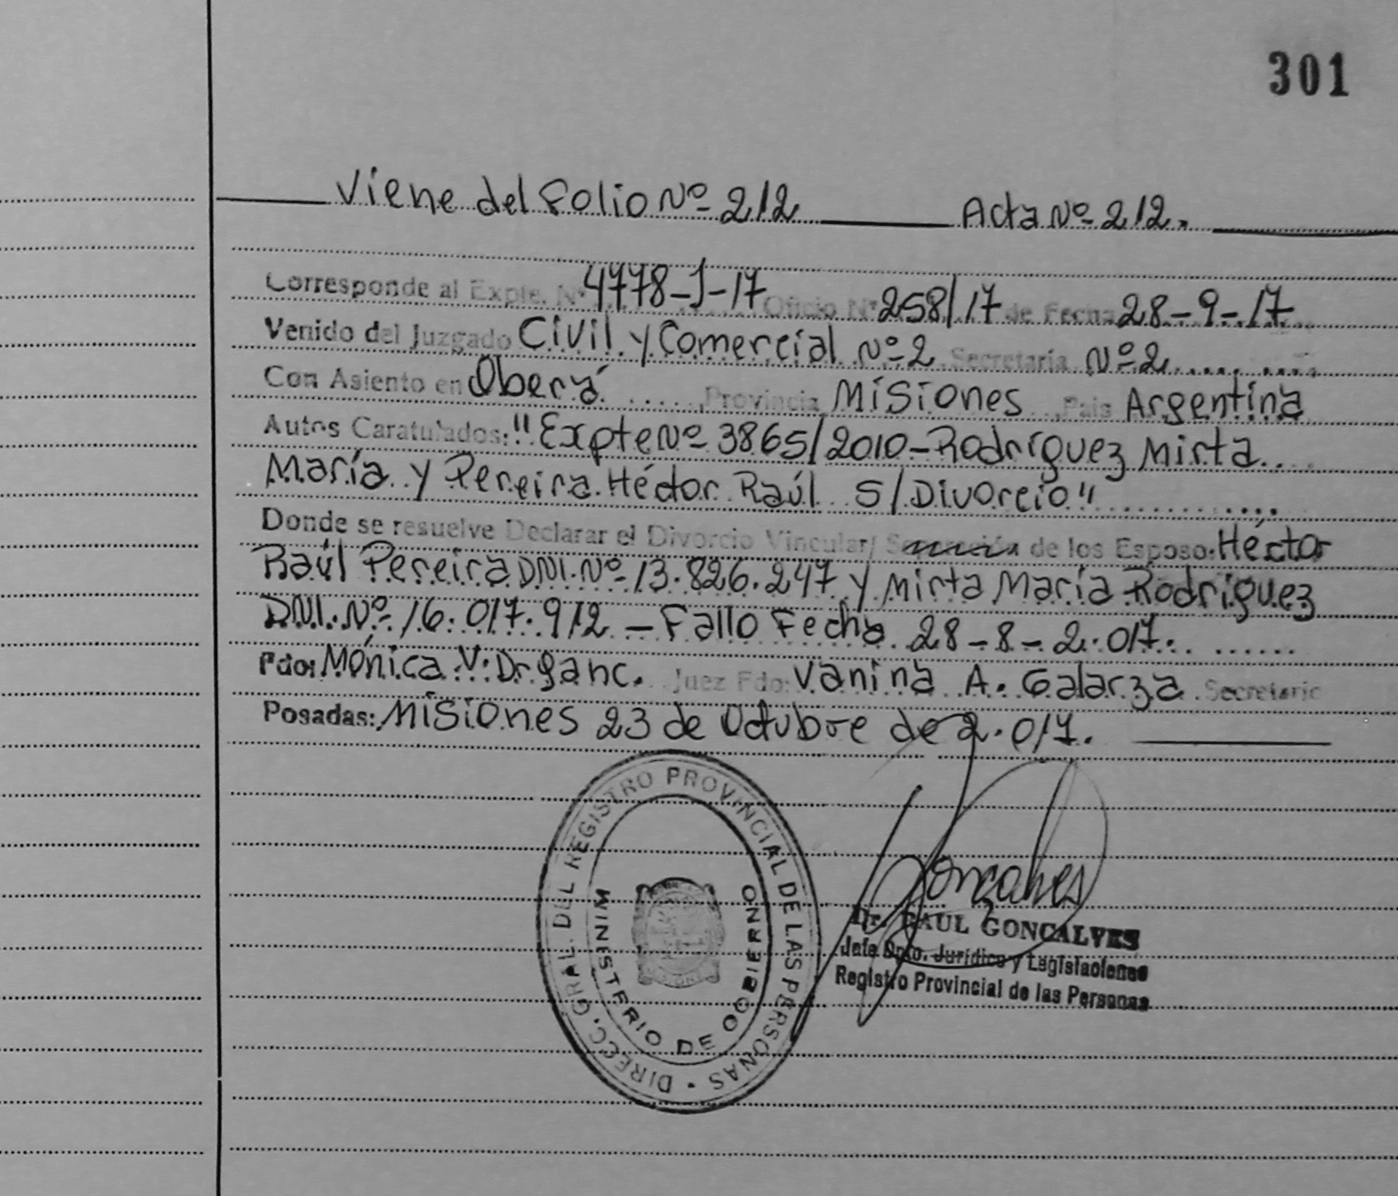 301
Viene del Folio Nº 212 Acta Nº 212.
Corresponde al Expte. Nº 4778-J-17 Oficio Nº 258/17 de Fecha 28-9-17
Venido del Juzgado Civil y Comercial Nº 2 Secretaría Nº 2
Con Asiento en Oberá Provincia Misiones Pais Argentina
Autos Caratulados: "Expte Nº 3865/2010-Rodríguez Mirta
María y Pereira Héctor Raúl S/Divorcio"
Donde se resuelve Declarar el Divorcio Vincular/ Separación de los Esposo: Héctor
Raúl Pereira DNI. Nº 13.826.247 y Mirta María Rodríguez
DNI. Nº 16.017.912 - Fallo Fecha 28-8-2.017.
Fdo: Mónica V. Drganc. Juez Fdo: Vanina A. Galarza Secretaric
Posadas: Misiones 23 de Octubre de 2.017.
DIRECC. GRAL. DEL REGISTRO PROVINCIAL DE LAS PERSONAS
MINISTERIO DE GOBIERNO
Goncalves
Dr. RAUL GONCALVES
Jefe Dpto. Jurídico y Legislaciones
Registro Provincial de las Personas